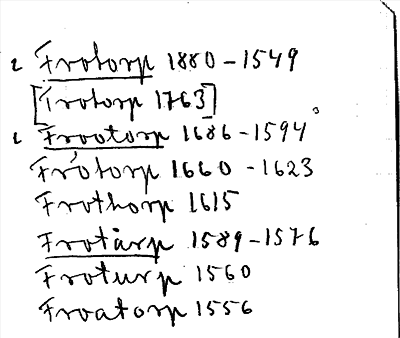 i Frotorp 1880-1549
[Trotorp 1763]
i Frootorp 1686-1594
Frótorp 1660-1623
Frothorp 1615
Frotàrp 1589-1576
Froturp 1560
Froatorp 1556